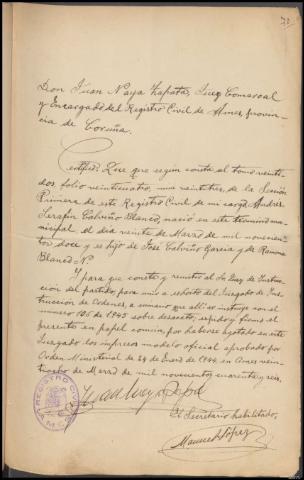 73
Don Juan Naya Zapata, Juez Comarcal
y Encargado del Registro Civil de Ames, provin-
cia de Coruña.
Certifico: Que según consta al tomo veinti-
dos folio veinticuatro, una veintitres, de la Sección
Primera de este Registro Civil de mi cargo Andrés
Serafin Calviño Blanco, nació en este termino mu-
nicipal el dia veinte de Marzo de mil novecien-
tos doce y es hijo de José Calviño Garcia y de Ramona
Blanco N.
Y para que conste y remitir al Sr. Juez de Instruc-
cion del partido, para unir a exhorto del Juzgado de Ins-
trucción de Ordenes, a sumario que alli se instruye con el
número 106 de 1945 sobre desacato, expido y firmo el
presente en papel comun, por haberse agotado en este
Juzgado los impresos modelo oficial aprobado por
Orden Ministerial de 24 de Enero de 1944, en Ames vein-
tiocho de Marzo de mil novecientos cuarenta y seis.
Juan Naya Zapata
El Secretario habilitado,
Manuel López
REGISTRO CIVIL
AMES